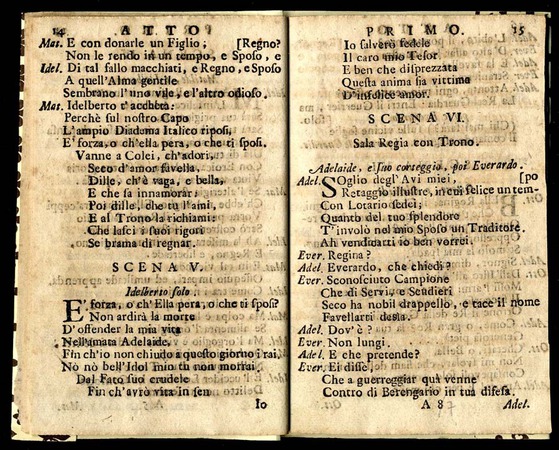 14 ATTO
Mat. E con donarle un Figlio; [Regno?
Non le rendo in un tempo, e Sposo, e
Idel. Di tal fallo macchiati, e Regno, e Sposo
A quell'Alma gentile
Sembrano l'uno vile, e l'altro odioso.
Mat. Idelberto t'accheta:
Perchè sul nostro Capo
L'ampio Diadema Italico riposi,
E' forza, o ch'ella pera, o che ti sposi.
Vanne a Colei, ch'adori,
Seco d'amor favella.
Dille, ch'è vaga, e bella,
E che fa innamorar:
Poi dille, che tu l'ami,
E al Trono la richiami:
Che lasci i suoi rigori
Se brama di regnar.
SCENA V.
Idelberto solo.
E' forza, o ch'Ella pera, o che ti sposi?
Non ardirà la morte
D'offender la mia vita
Nell'amata Adelaide.
Fin ch'io non chiudo a questo giorno i rai,
Nò nò bell'Idol mio tu non morrai.
Dal Fato suo crudele
Fin ch'avrò vita in sen
Io
PRIMO. 15
Io salverò fedele
Il caro mio Tesor.
E ben che disprezzata
Questa anima sia vittima
D'infelice amor.
SCENA VI.
Sala Regia con Trono.
Adelaide, e suo corteggio, poi Everardo.
Adel. SOglio degl'Avi miei, [po
Retaggio illustre, in cui felice un tem-
Con Lotario sedei;
Quanto del tuo splendore
T'involò nel mio Sposo un Traditore.
Ah vendicatti io ben vorrei.
Ever. Regina?
Adel. Everardo, che chiedi?
Ever. Sconosciuto Campione
Che di Servi, e Scudieri
Seco ha nobil drappello, e tace il nome
Favellarti desia.
Adel. Dov'è?
Ever. Non lungi.
Adel. E che pretende?
Ever. Ei disse,
Che a guerreggiar quà venne
Contro di Berengario in tua difesa.
A 8 Adel.